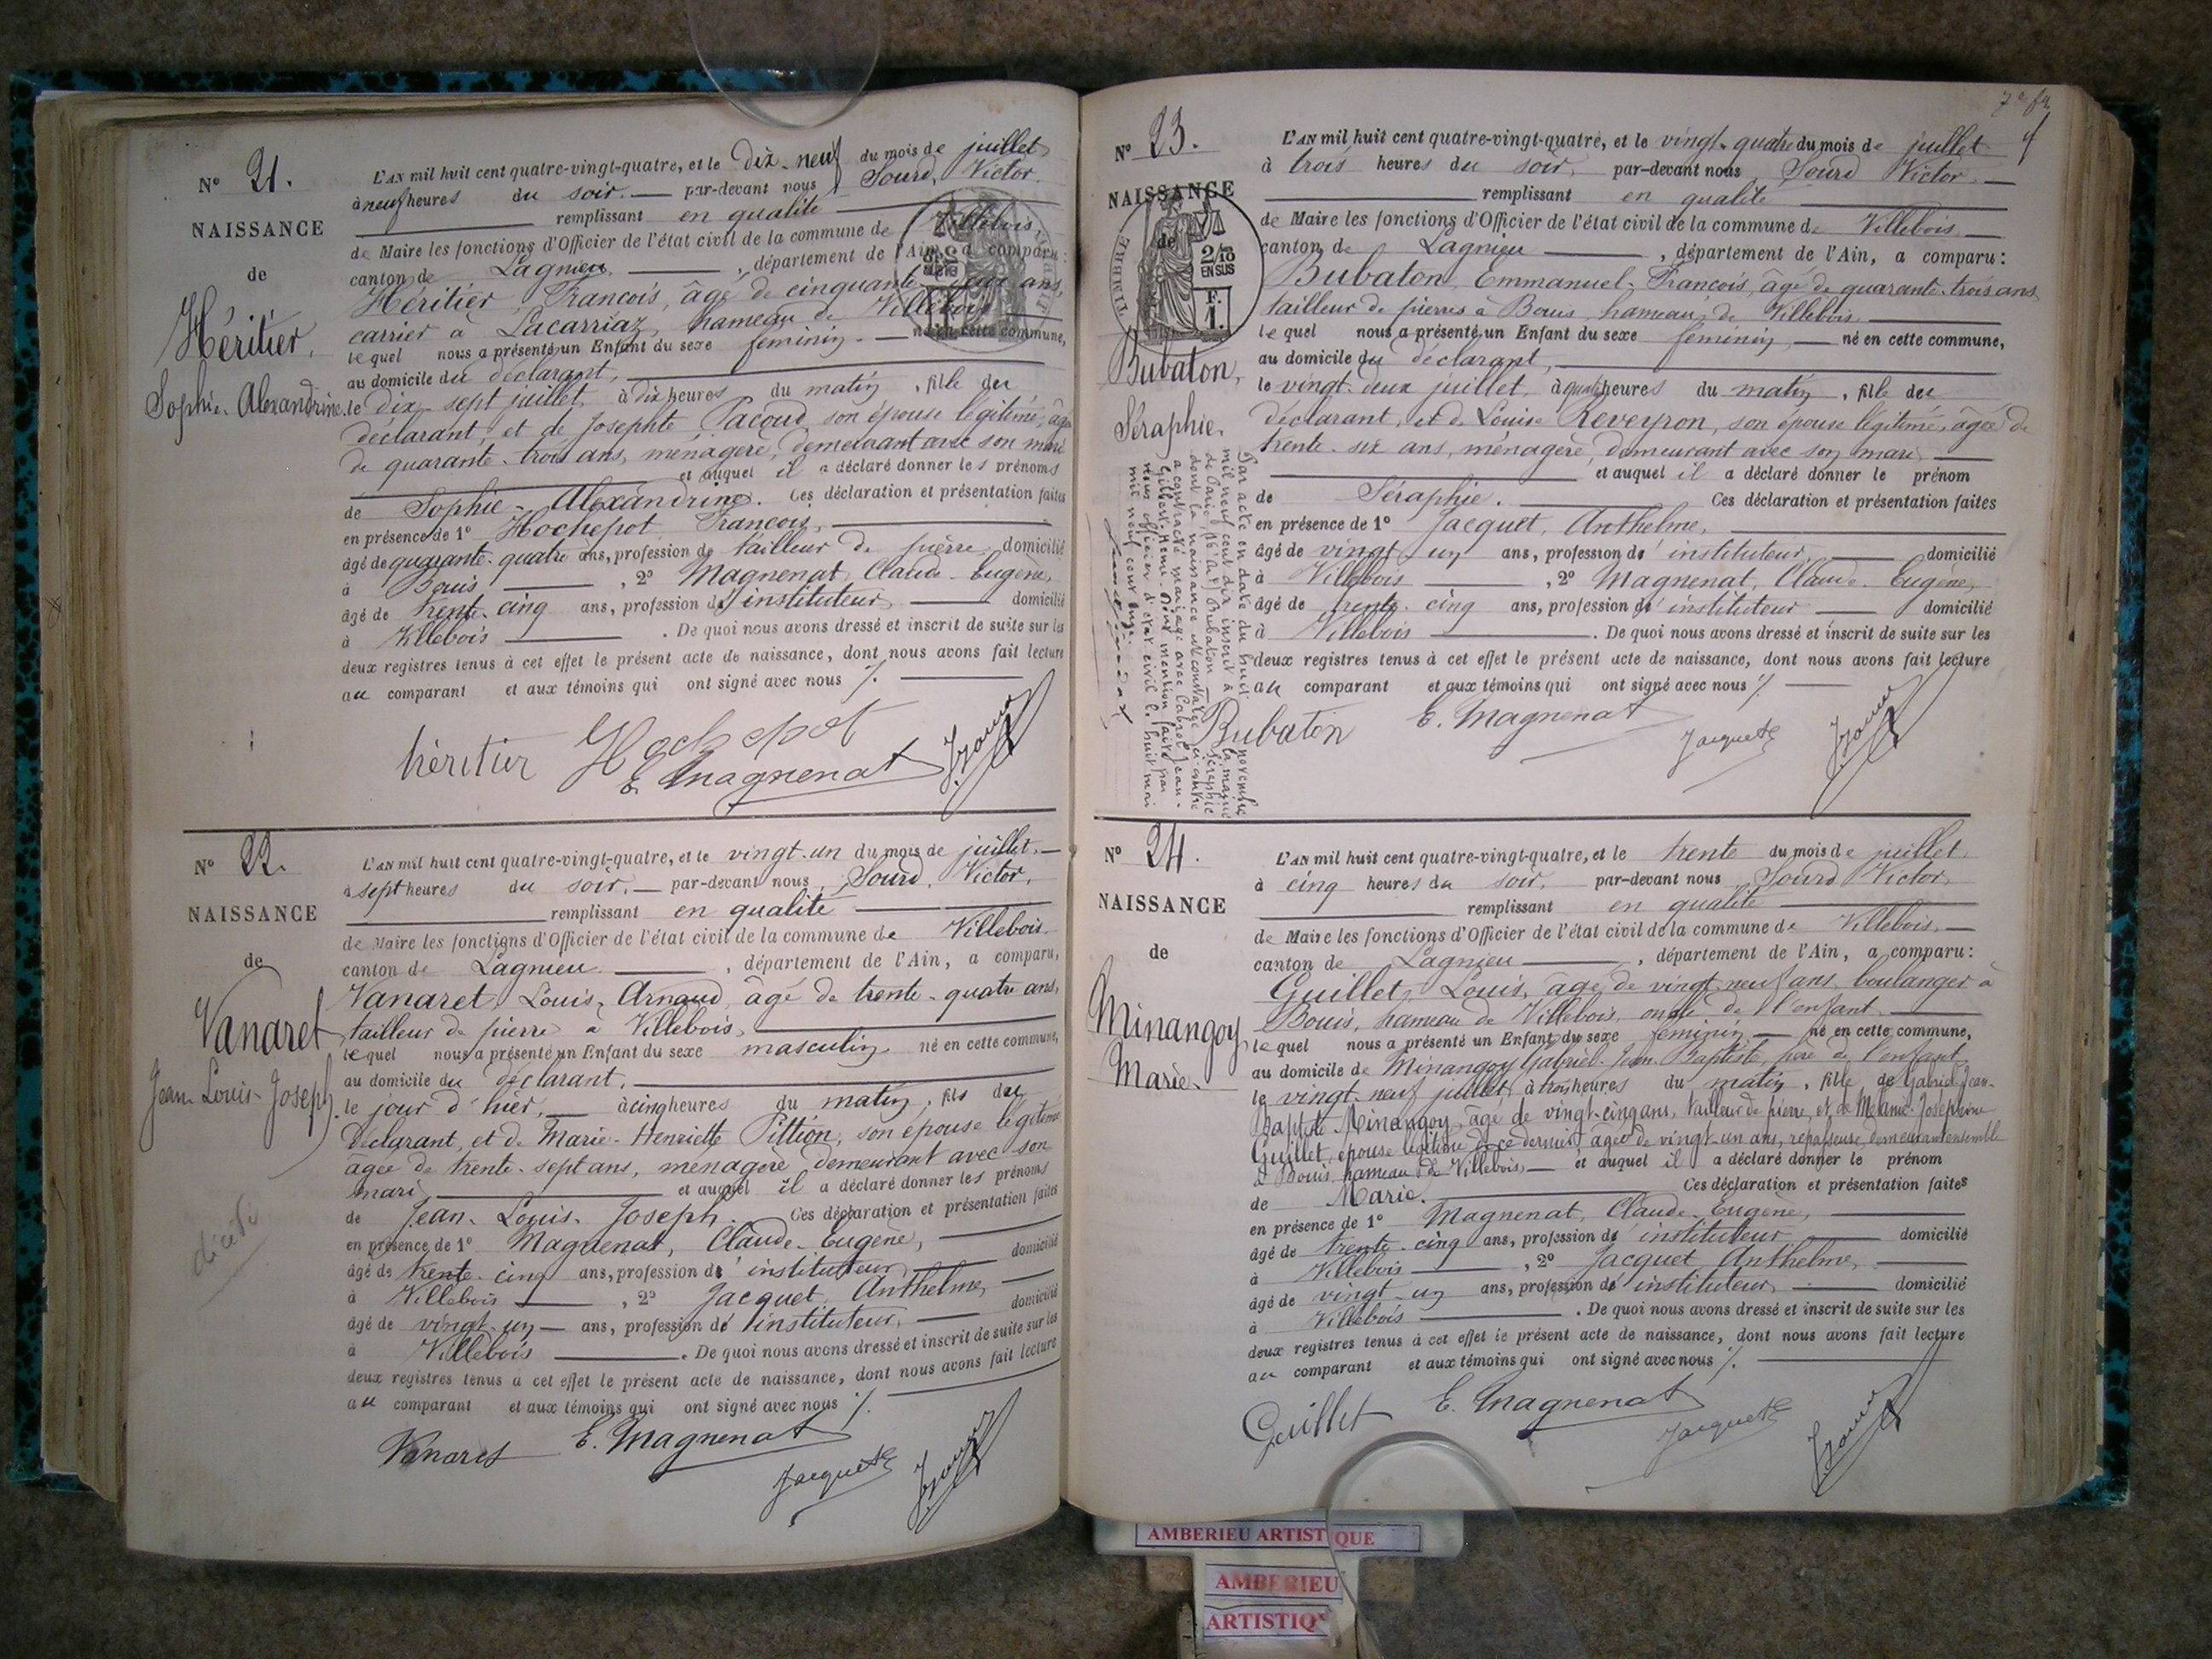 N° 21.
NAISSANCE
de
Héritier,
Sophie-Alexandrine.
L'AN mil huit cent quatre-vingt-quatre, et le dix-neuf du mois de juillet
à neuf heures du soir. par-devant nous Sourd, Victor
remplissant en qualité
de Maire les fonctions d'Officier de l'état civil de la commune de Villebois,
canton de Lagnieu, département de l'Ain, a comparu:
Héritier, François, âgé de cinquante ans,
carrier à Lacarriaz, hameau de Villebois
lequel nous a présenté un Enfant du sexe féminin né en cette commune,
au domicile du déclarant,
le dix-sept juillet, à dix heures du matin, fille du
déclarant, et de Josephte Pacoud, son épouse légitime, âgée
de quarante-trois ans, ménagère, demeurant avec son mari
et auquel il a déclaré donner les prénoms
de Sophie-Alexandrine. Ces déclaration et présentation faites
en présence de 1° Hochepot, François,
âgé de quarante-quatre ans, profession de tailleur de pierre, domicilié
à Bouis, 2° Magnenat, Claude-Eugène,
âgé de trente-cinq ans, profession d'instituteur, domicilié
à Villebois. De quoi nous avons dressé et inscrit de suite sur les
deux registres tenus à cet effet le présent acte de naissance, dont nous avons fait lecture
au comparant et aux témoins qui ont signé avec nous ./.
héritier Hochepot
E. Magnenat
N° 22.
NAISSANCE
de
Vanaret
Jean-Louis-Joseph
décédé
L'AN mil huit cent quatre-vingt-quatre, et le vingt-un du mois de juillet,
à sept heures du soir. par-devant nous, Sourd, Victor,
remplissant en qualité
de Maire les fonctions d'Officier de l'état civil de la commune de Villebois
canton de Lagnieu, département de l'Ain, a comparu,
Vanaret, Louis-Arnaud, âgé de trente-quatre ans,
tailleur de pierre à Villebois,
lequel nous a présenté un Enfant du sexe masculin né en cette commune,
au domicile du déclarant,
le jour d'hier, à cinq heures du matin, fils du
déclarant, et de Marie-Henriette Pittion, son épouse légitime
âgée de trente-sept ans, ménagère demeurant avec son
mari et auquel il a déclaré donner les prénoms
de Jean-Louis-Joseph. Ces déclaration et présentation faites
en présence de 1° Magnenat, Claude-Eugène,
âgé de trente-cinq ans, profession d'instituteur, domicilié
à Villebois, 2° Jacquet, Anthelme,
âgé de vingt-un ans, profession d'instituteur, domicilié
à Villebois. De quoi nous avons dressé et inscrit de suite sur les
deux registres tenus à cet effet le présent acte de naissance, dont nous avons fait lecture
au comparant et aux témoins qui ont signé avec nous ./.
Vanaret E. Magnenat
Jacquet
N° 23.
NAISSANCE
de
TIMBRE
2/10
EN SUS
F.
1.
Bubaton,
Séraphie.
L'AN mil huit cent quatre-vingt-quatre, et le vingt-quatre du mois de juillet
à trois heures du soir, par-devant nous Sourd Victor
remplissant en qualité
de Maire les fonctions d'Officier de l'état civil de la commune de Villebois
canton de Lagnieu, département de l'Ain, a comparu:
Bubaton, Emmanuel-François, âgé de quarante-trois ans,
tailleur de pierres à Bouis, hameau de Villebois
lequel nous a présenté un Enfant du sexe féminin, né en cette commune,
au domicile du déclarant,
le vingt-deux juillet, à quatre heures du matin, fille du
déclarant, et de Louise Reveyron, son épouse légitime, âgée de
trente-six ans, ménagère, demeurant avec son mari
et auquel il a déclaré donner le prénom
de Séraphie. Ces déclaration et présentation faites
en présence de 1° Jacquet, Anthelme,
âgé de vingt-un ans, profession d'instituteur, domicilié
à Villebois, 2° Magnenat, Claude-Eugène,
âgé de trente-cinq ans, profession d'instituteur domicilié
à Villebois. De quoi nous avons dressé et inscrit de suite sur les
deux registres tenus à cet effet le présent acte de naissance, dont nous avons fait lecture
au comparant et aux témoins qui ont signé avec nous ./.
Par acte en date du huit novembre
mil neuf cent dix inscrit à la mairie
de Paris (16e Ar.) Bubaton Séraphie
dont la naissance est constatée ci-contre
a contracté mariage avec Jean-
Gilbert-Henri. Dont mention faite par
nous officier d'état civil le huit mai
mil neuf cent onze.
Bubaton E. Magnenat
Jacquet
N° 24.
NAISSANCE
de
Minangoy,
Marie.
L'AN mil huit cent quatre-vingt-quatre, et le trente du mois de juillet
à cinq heures du soir, par-devant nous Sourd Victor,
remplissant en qualité
de Maire les fonctions d'Officier de l'état civil de la commune de Villebois,
canton de Lagnieu, département de l'Ain, a comparu:
Guillet, Louis, âgé de vingt-neuf ans, boulanger à
Bouis, hameau de Villebois, oncle de l'enfant
lequel nous a présenté un Enfant du sexe féminin né en cette commune,
au domicile de Minangoy Gabriel-Jean-Baptiste, père de l'enfant,
le vingt-neuf juillet, à trois heures du matin, fille de Gabriel-Jean-
Baptiste Minangoy, âgé de vingt-cinq ans, tailleur de pierre, et de Mélanie-Joséphine
Guillet, épouse légitime de ce dernier, âgée de vingt-un ans, repasseuse, demeurant ensemble
à Bouis hameau de Villebois, et auquel il a déclaré donner le prénom
de Marie. Ces déclaration et présentation faites
en présence de 1° Magnenat, Claude-Eugène,
âgé de trente-cinq ans, profession d'instituteur domicilié
à Villebois, 2° Jacquet Anthelme,
âgé de vingt-un ans, profession d'instituteur, domicilié
à Villebois. De quoi nous avons dressé et inscrit de suite sur les
deux registres tenus à cet effet le présent acte de naissance, dont nous avons fait lecture
au comparant et aux témoins qui ont signé avec nous ./.
Guillet E. Magnenat
Jacquet
AMBERIEU ARTISTIQUE
AMBERIEU
ARTISTIQ